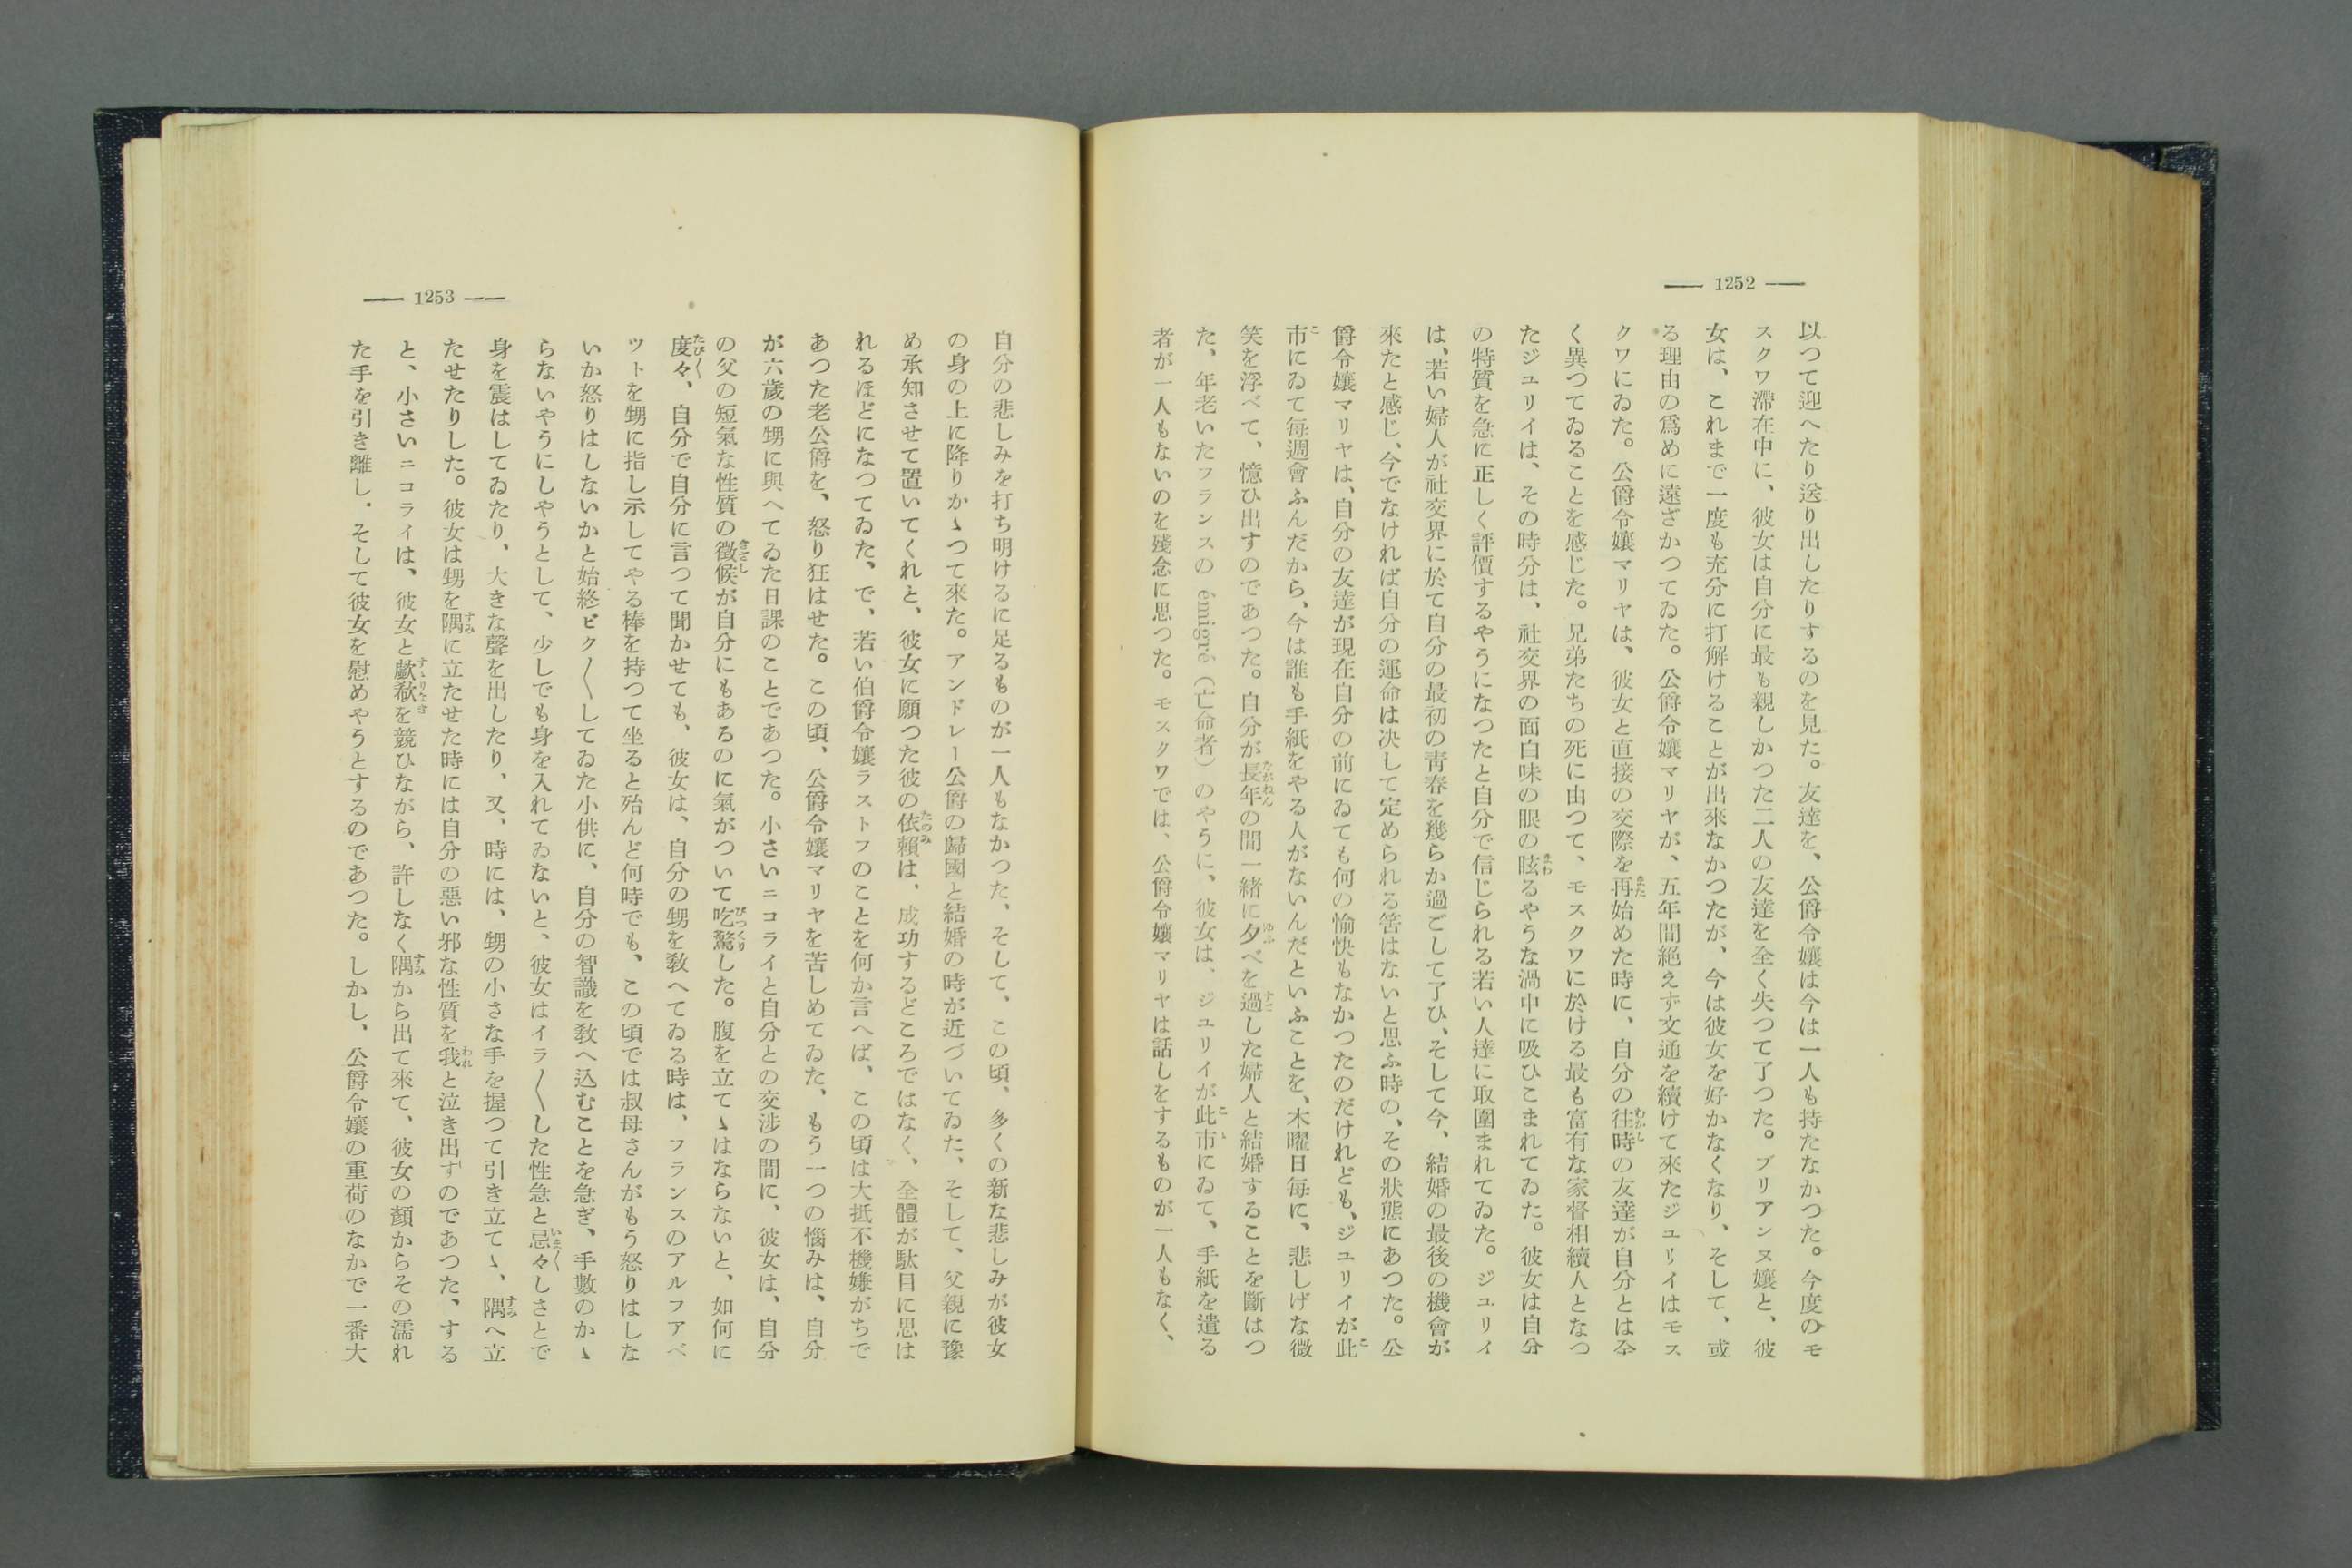 — 1252 —
以つて迎へたり送り出したりするのを見た。友達を、公爵令嬢は今は一人も持たなかつた。今度のモ
スクワ滯在中に、彼女は自分に最も親しかつた二人の友達を全く失つて了つた。ブリアンヌ嬢と、彼
女は、これまで一度も充分に打解けることが出來なかつたが、今は彼女を好かなくなり、そして、或
る理由の爲めに遠ざかつてゐた。公爵令嬢マリヤが、五年間絶えず文通を續けて來たジュリイはモス
クワにゐた。公爵令嬢マリヤは、彼女と直接の交際を再始めた時に、自分の往時の友達が自分とは全
く異つてゐることを感じた。兄弟たちの死に由つて、モスクワに於ける最も富有な家督相續人となつ
たジュリイは、その時分は、社交界の面白味の眼の眩るやうな渦中に吸ひこまれてゐた。彼女は自分
の特質を急に正しく評價するやうになつたと自分で信じられる若い人達に取圍まれてゐた。ジュリイ
は、若い婦人が社交界に於て自分の最初の靑春を幾らか過ごして了ひ、そして今、結婚の最後の機會が
來たと感じ、今でなければ自分の運命は決して定められる筈はないと思ふ時の、その狀態にあつた。公
爵令嬢マリヤは、自分の友達が現在自分の前にゐても何の愉快もなかつたのだけれども、ジュリイが此
市にゐて毎週會ふんだから、今は誰も手紙をやる人がないんだといふことを、木曜日毎に、悲しげな微
笑を浮べて、憶ひ出すのであつた。自分が長年の間一緒に夕べを過した婦人と結婚することを斷はつ
た、年老いたフランスの émigré（亡命者）のやうに、彼女は、ジュリイが此市にゐて、手紙を遣る
者が一人もないのを殘念に思つた。モスクワでは、公爵令嬢マリヤは話しをするものが一人もなく、
— 1253 —
自分の悲しみを打ち明けるに足るものが一人もなかつた、そして、この頃、多くの新た悲しみが彼女
の身の上に降りかゝつて來た。アンドレー公爵の歸國と結婚の時が近づいてゐた、そして、父親に豫
め承知させて置いてくれと、彼女に願つた彼の依賴は、成功するどころではなく、全體が駄目に思は
れるほどになつてゐた、で、若い伯爵令嬢ラストフのことを何か言へば、この頃は大抵不機嫌がちで
あつた老公爵を、怒り狂はせた。この頃、公爵令嬢マリヤを苦しめてゐた、もう一つの惱みは、自分
が六歲の甥に與へてゐた日課のことであつた。小さいニコライと自分との交涉の間に、彼女は、自分
の父の短氣な性質の徵候が自分にもあるのに氣がついて吃驚した。腹を立てゝはならないと、如何に
度々、自分で自分に言つて聞かせても、彼女は、自分の甥を敎へてゐる時は、フランスのアルフアベ
ツトを甥に指し示してやる棒を持つて坐ると殆んど何時でも、この頃では叔母さんがもう怒りはしな
いか怒りはしないかと始終ビク〱してゐた小供に、自分の智識を敎へ込むことを急ぎ、手數のかゝ
らないやうにしやうとして、少しでも身を入れてゐないと、彼女はイラ〱した性急と忌々しさとで
身を震はしてゐたり、大きな聲を出したり、又、時には、甥の小さな手を握つて引き立てゝ、隅へ立
たせたりした。彼女は甥を隅に立たせた時には自分の惡い邪な性質を我と泣き出すのであつた、する
と、小さいニコライは、彼女と歔欷を競ひながら、許しなく隅から出て來て、彼女の顏からその濡れ
た手を引き離し、そして彼女を慰めやうとするのであつた。しかし、公爵令嬢の重荷のなかで一番大